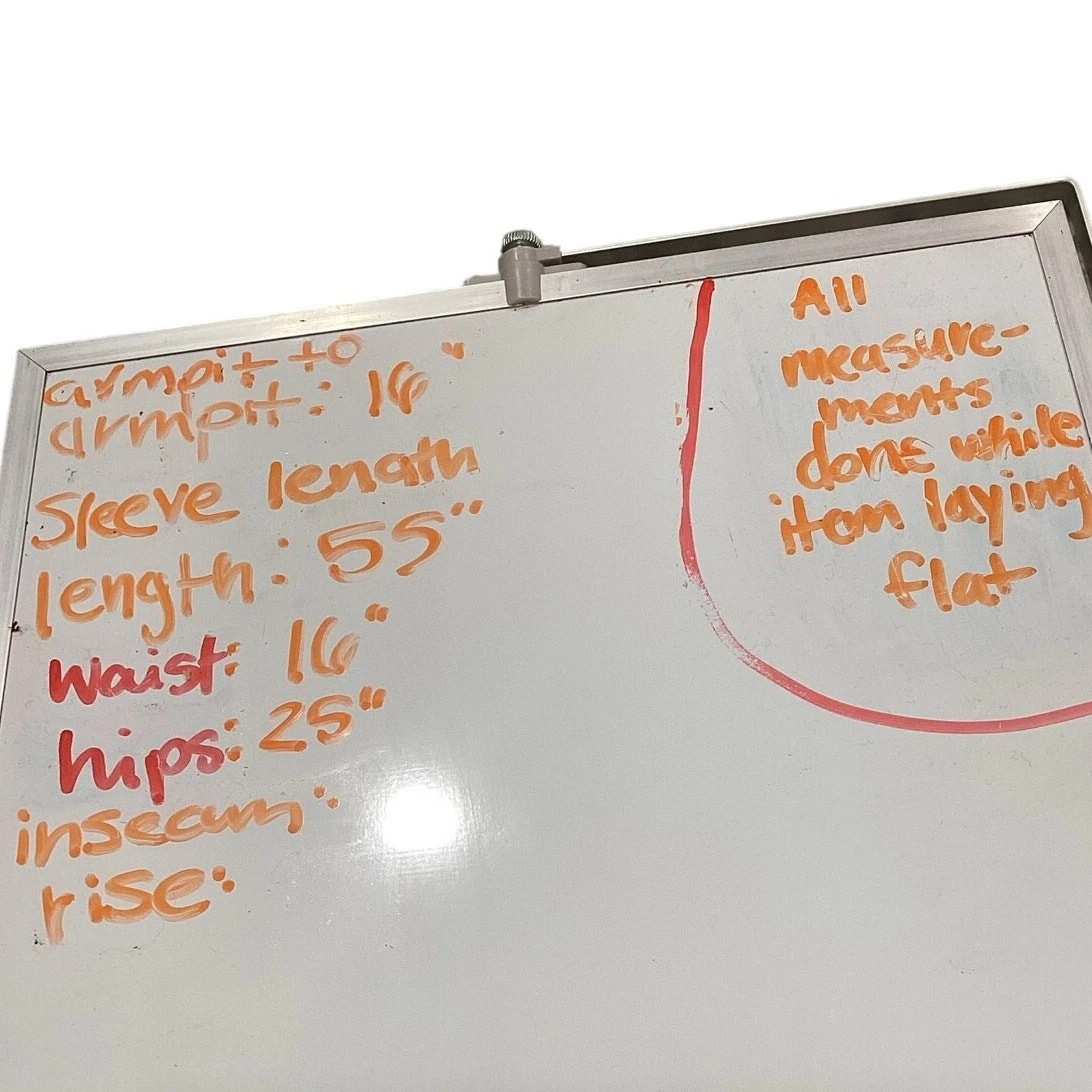 armpit to
armpit: 16"
Sleeve length
length: 55"
waist: 16"
hips: 25"
inseam:
rise:
All
measure-
ments
done while
item laying
flat